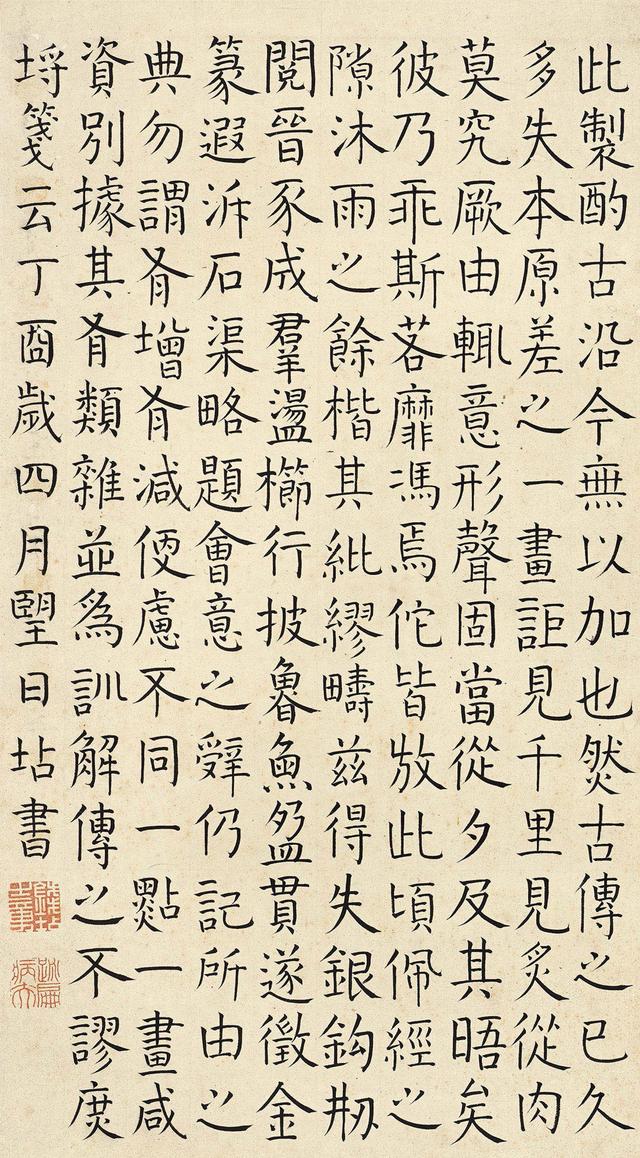 此製酌古沿今無以加也然古傳之已久
多失本原差之一畫詎見千里見炙從肉
莫究厥由輒意形聲固當從夕及其晤矣
彼乃乖斯茖靡馮焉佗皆放此頃佩經之
隙沐雨之餘楷其紕繆疇茲得失銀鉤刱
閱晉豕成羣盪櫛行披魯魚盈貫遂徵金
篆遐泝石渠略題會意之辤仍記所由之
典勿謂有增有減便慮不同一點一畫咸
資別據其有類雜並為訓解傳之不謬庶
埒箋云丁酉歲四月朢日坫書